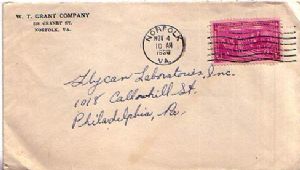 W. T. GRANT COMPANY
GRANBY ST.
NORFOLK, VA.
NORFOLK
NOV 4
10 AM
VA.
Flycan Laboratories, Inc.
1018 Callowhill St.
Philadelphia, Pa.